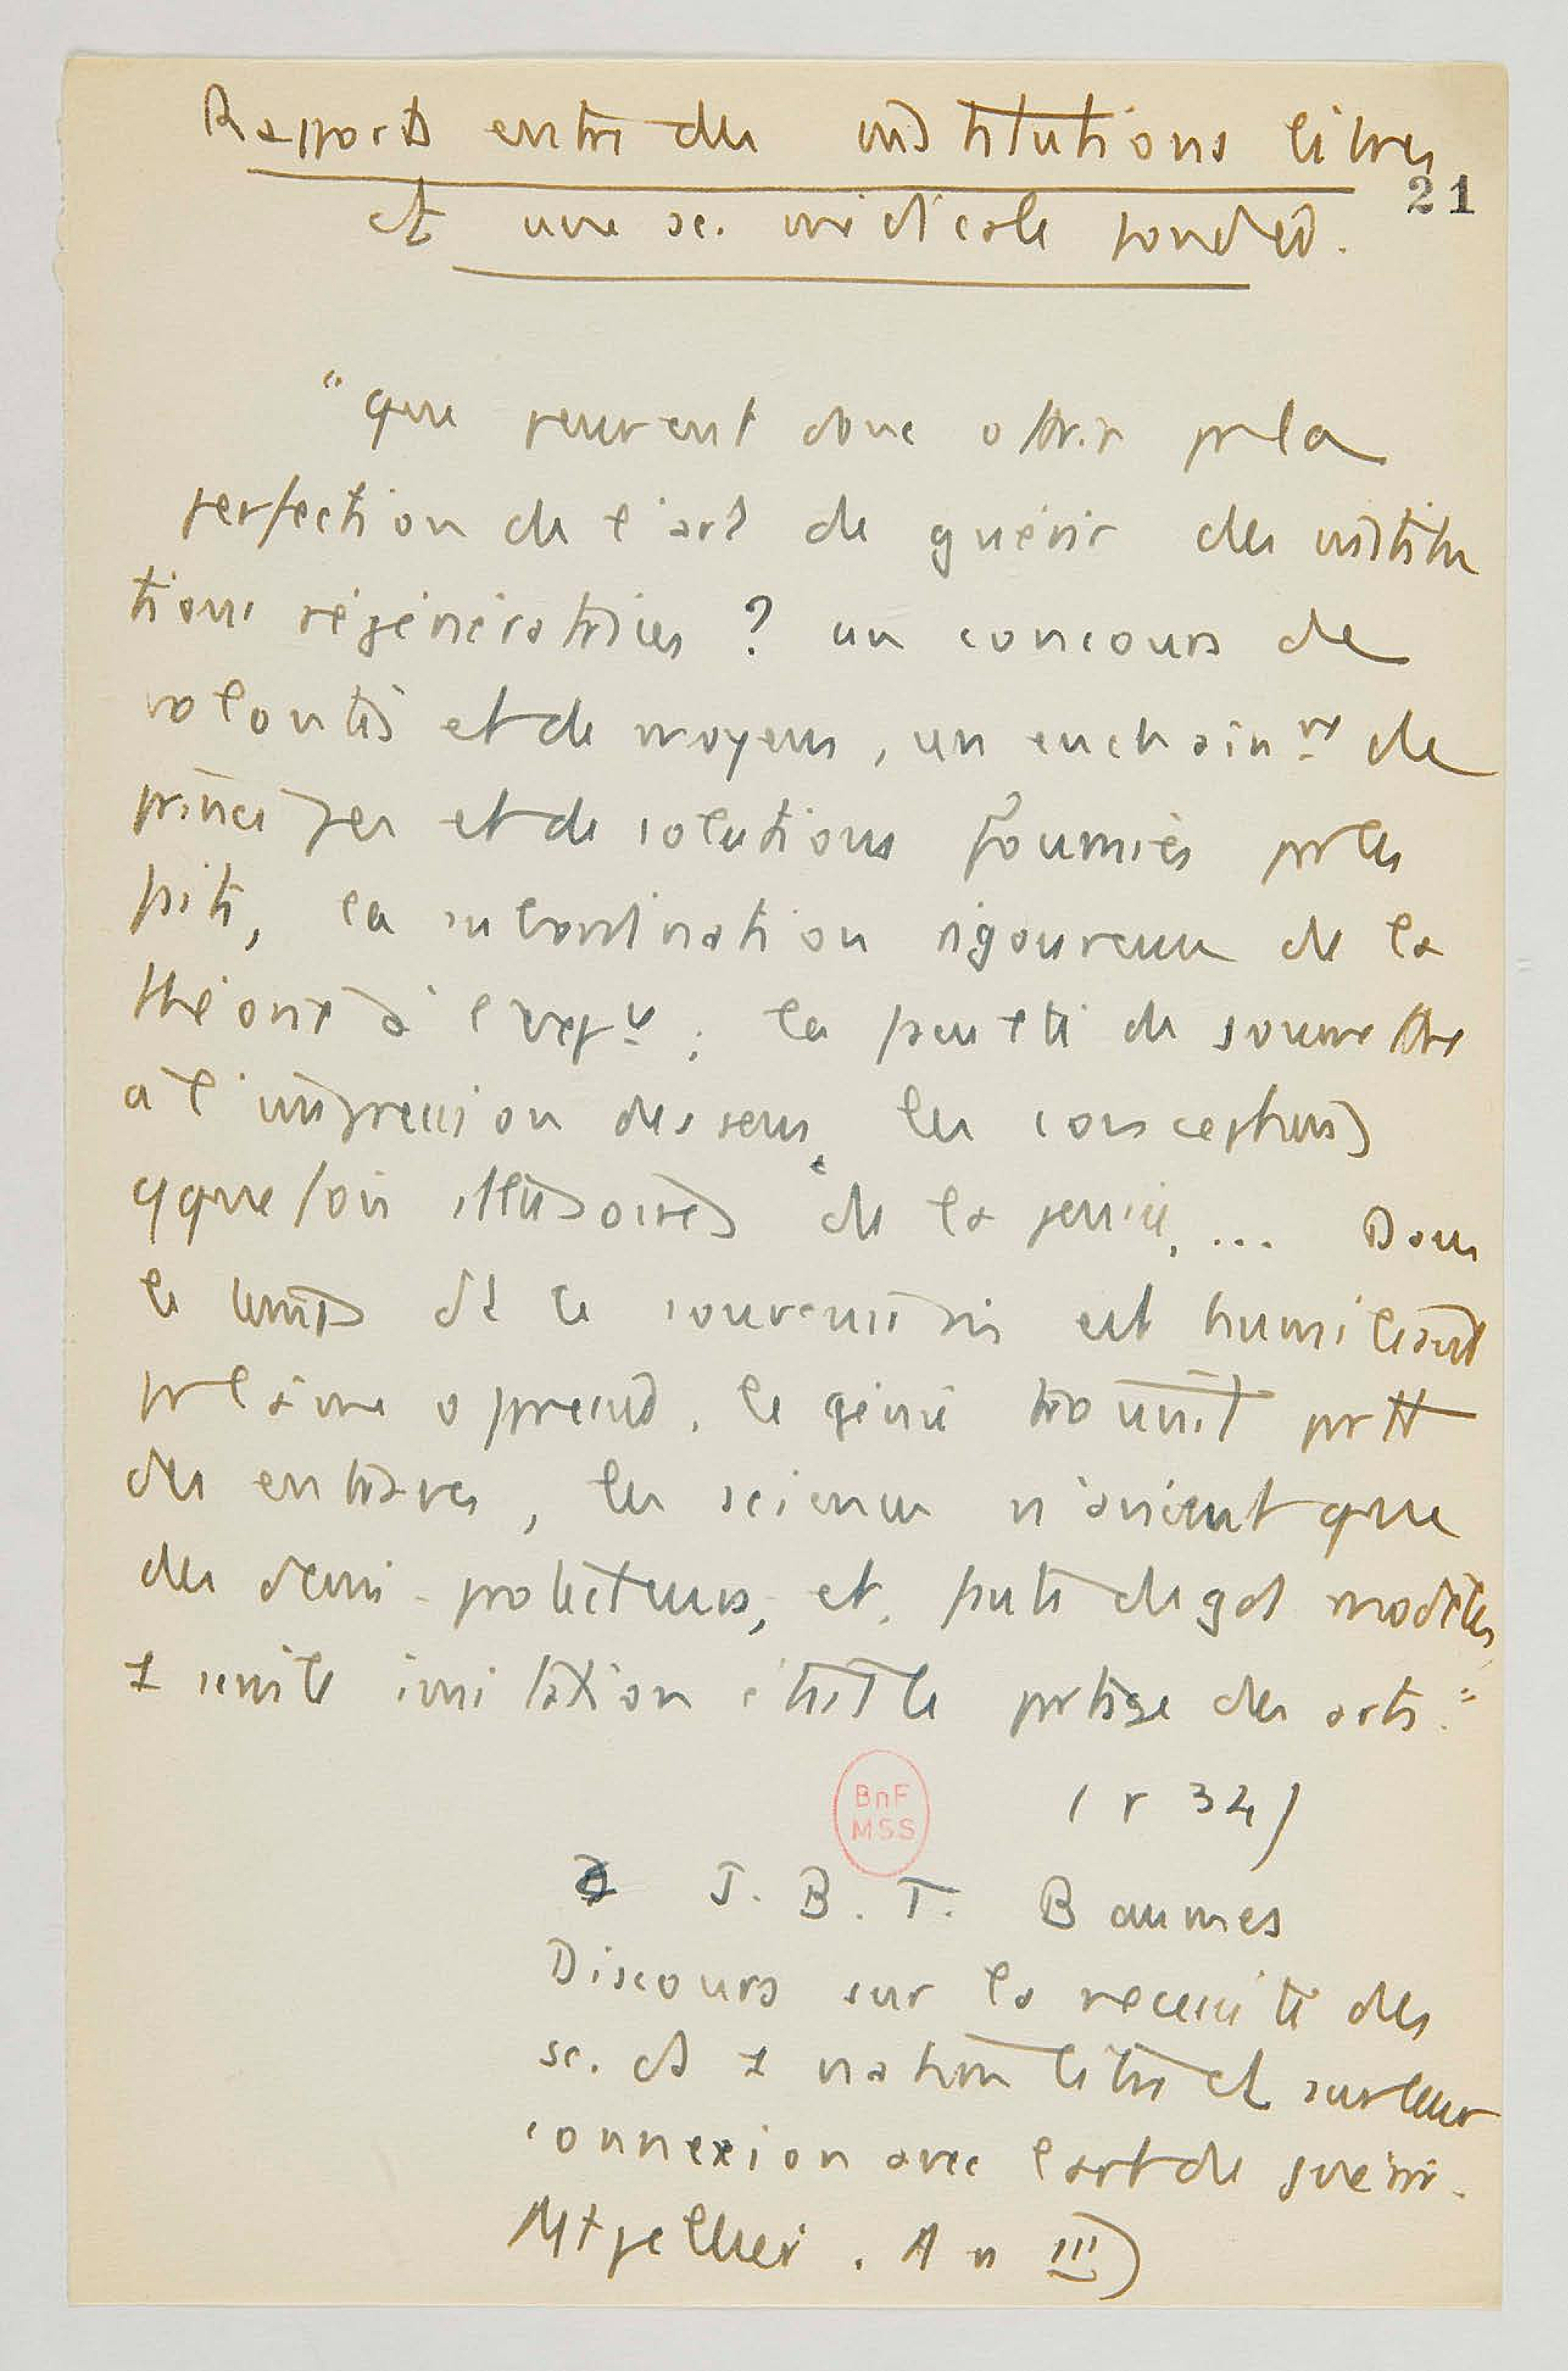 Rapports entre des institutions libres
21
et une sc. médicale fondée.
"que peuvent donc offrir pr la
perfection de l'art de guérir des institu
tions régénératrices ? un concours de
volontés et de moyens, un enchainmt de
principes et de solutions fournies pr les
faits, la subordination rigoureuse de la
théorie à l'expce ; la faculté de soumettre
à l'impression des sens, les conceptions
qquefois illusoires de la pensée, ... Dans
le temps dt le souvenir est humiliant
pr l'âme oppressée, le génie trouvait prtt
des entraves, les sciences n'avaient que
des demi-protecteurs, et, faute de gds modèles,
1 servile imitation était le partage des arts."
(p 34)
J. B. T. Baumes
Discours sur la nécessité des
sc. ds 1 nation libre et sur leur
connexion avec l'art de guérir.
Mtpellier. An III)